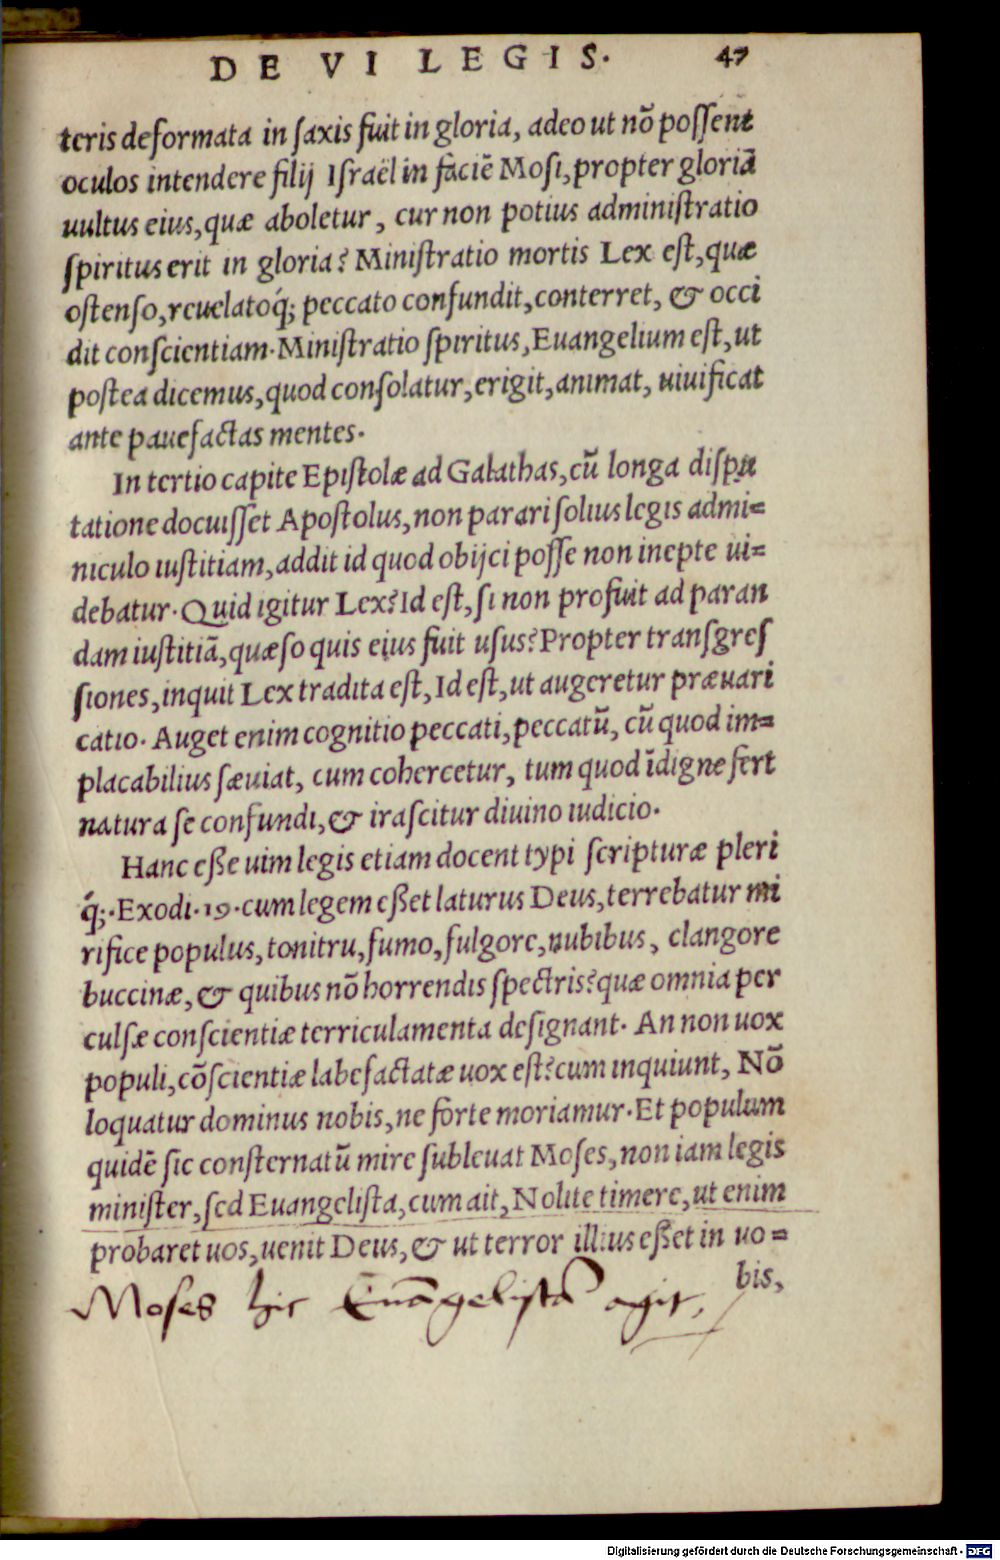 DE VI LEGIS. 47
teris deformata in ſaxis fuit in gloria, adeo ut nō poſſent
oculos intendere filij Iſraël in faciē Moſi, propter gloriā
uultus eius, quæ aboletur, cur non potius adminiſtratio
ſpiritus erit in gloria? Miniſtratio mortis Lex eſt, quæ
oſtenſo, reuelatoq́; peccato confundit, conterret, & occi
dit conſcientiam. Miniſtratio ſpiritus, Euangelium eſt, ut
poſtea dicemus, quod conſolatur, erigit, animat, uiuificat
ante pauefactas mentes.
In tertio capite Epiſtolæ ad Galathas, cū longa diſpu
tatione docuiſſet Apoſtolus, non parari ſolius legis admi=
niculo iuſtitiam, addit id quod obijci poſſe non inepte ui=
debatur. Quid igitur Lex? Id eſt, ſi non profuit ad paran
dam iuſtitiā, quæſo quis eius fuit uſus? Propter tranſgreſ
ſiones, inquit Lex tradita eſt, Id eſt, ut augeretur præuari
catio. Auget enim cognitio peccati, peccatū, cū quod im=
placabilius ſæuiat, cum cohercetur, tum quod īdigne fert
natura ſe confundi, & iraſcitur diuino iudicio.
Hanc eße uim legis etiam docent typi ſcripturæ pleri
q́;. Exodi. 19. cum legem eßet laturus Deus, terrebatur mi
rifice populus, tonitru, fumo, fulgore, nubibus, clangore
buccinæ, & quibus nō horrendis ſpectris? quæ omnia per
culſæ conſcientiæ terriculamenta deſignant. An non uox
populi, cōſcientiæ labefactatæ uox eſt? cum inquiunt, Nō
loquatur dominus nobis, ne forte moriamur. Et populum
quidē ſic conſternatū mire ſubleuat Moſes, non iam legis
miniſter, ſed Euangeliſta, cum ait, Nolite timere, ut enim
probaret uos, uenit Deus, & ut terror illius eßet in uo=
bis,
Moses hic Euāgelistā agit.
Digitalisierung gefördert durch die Deutsche Forschungsgemeinschaft - DFG